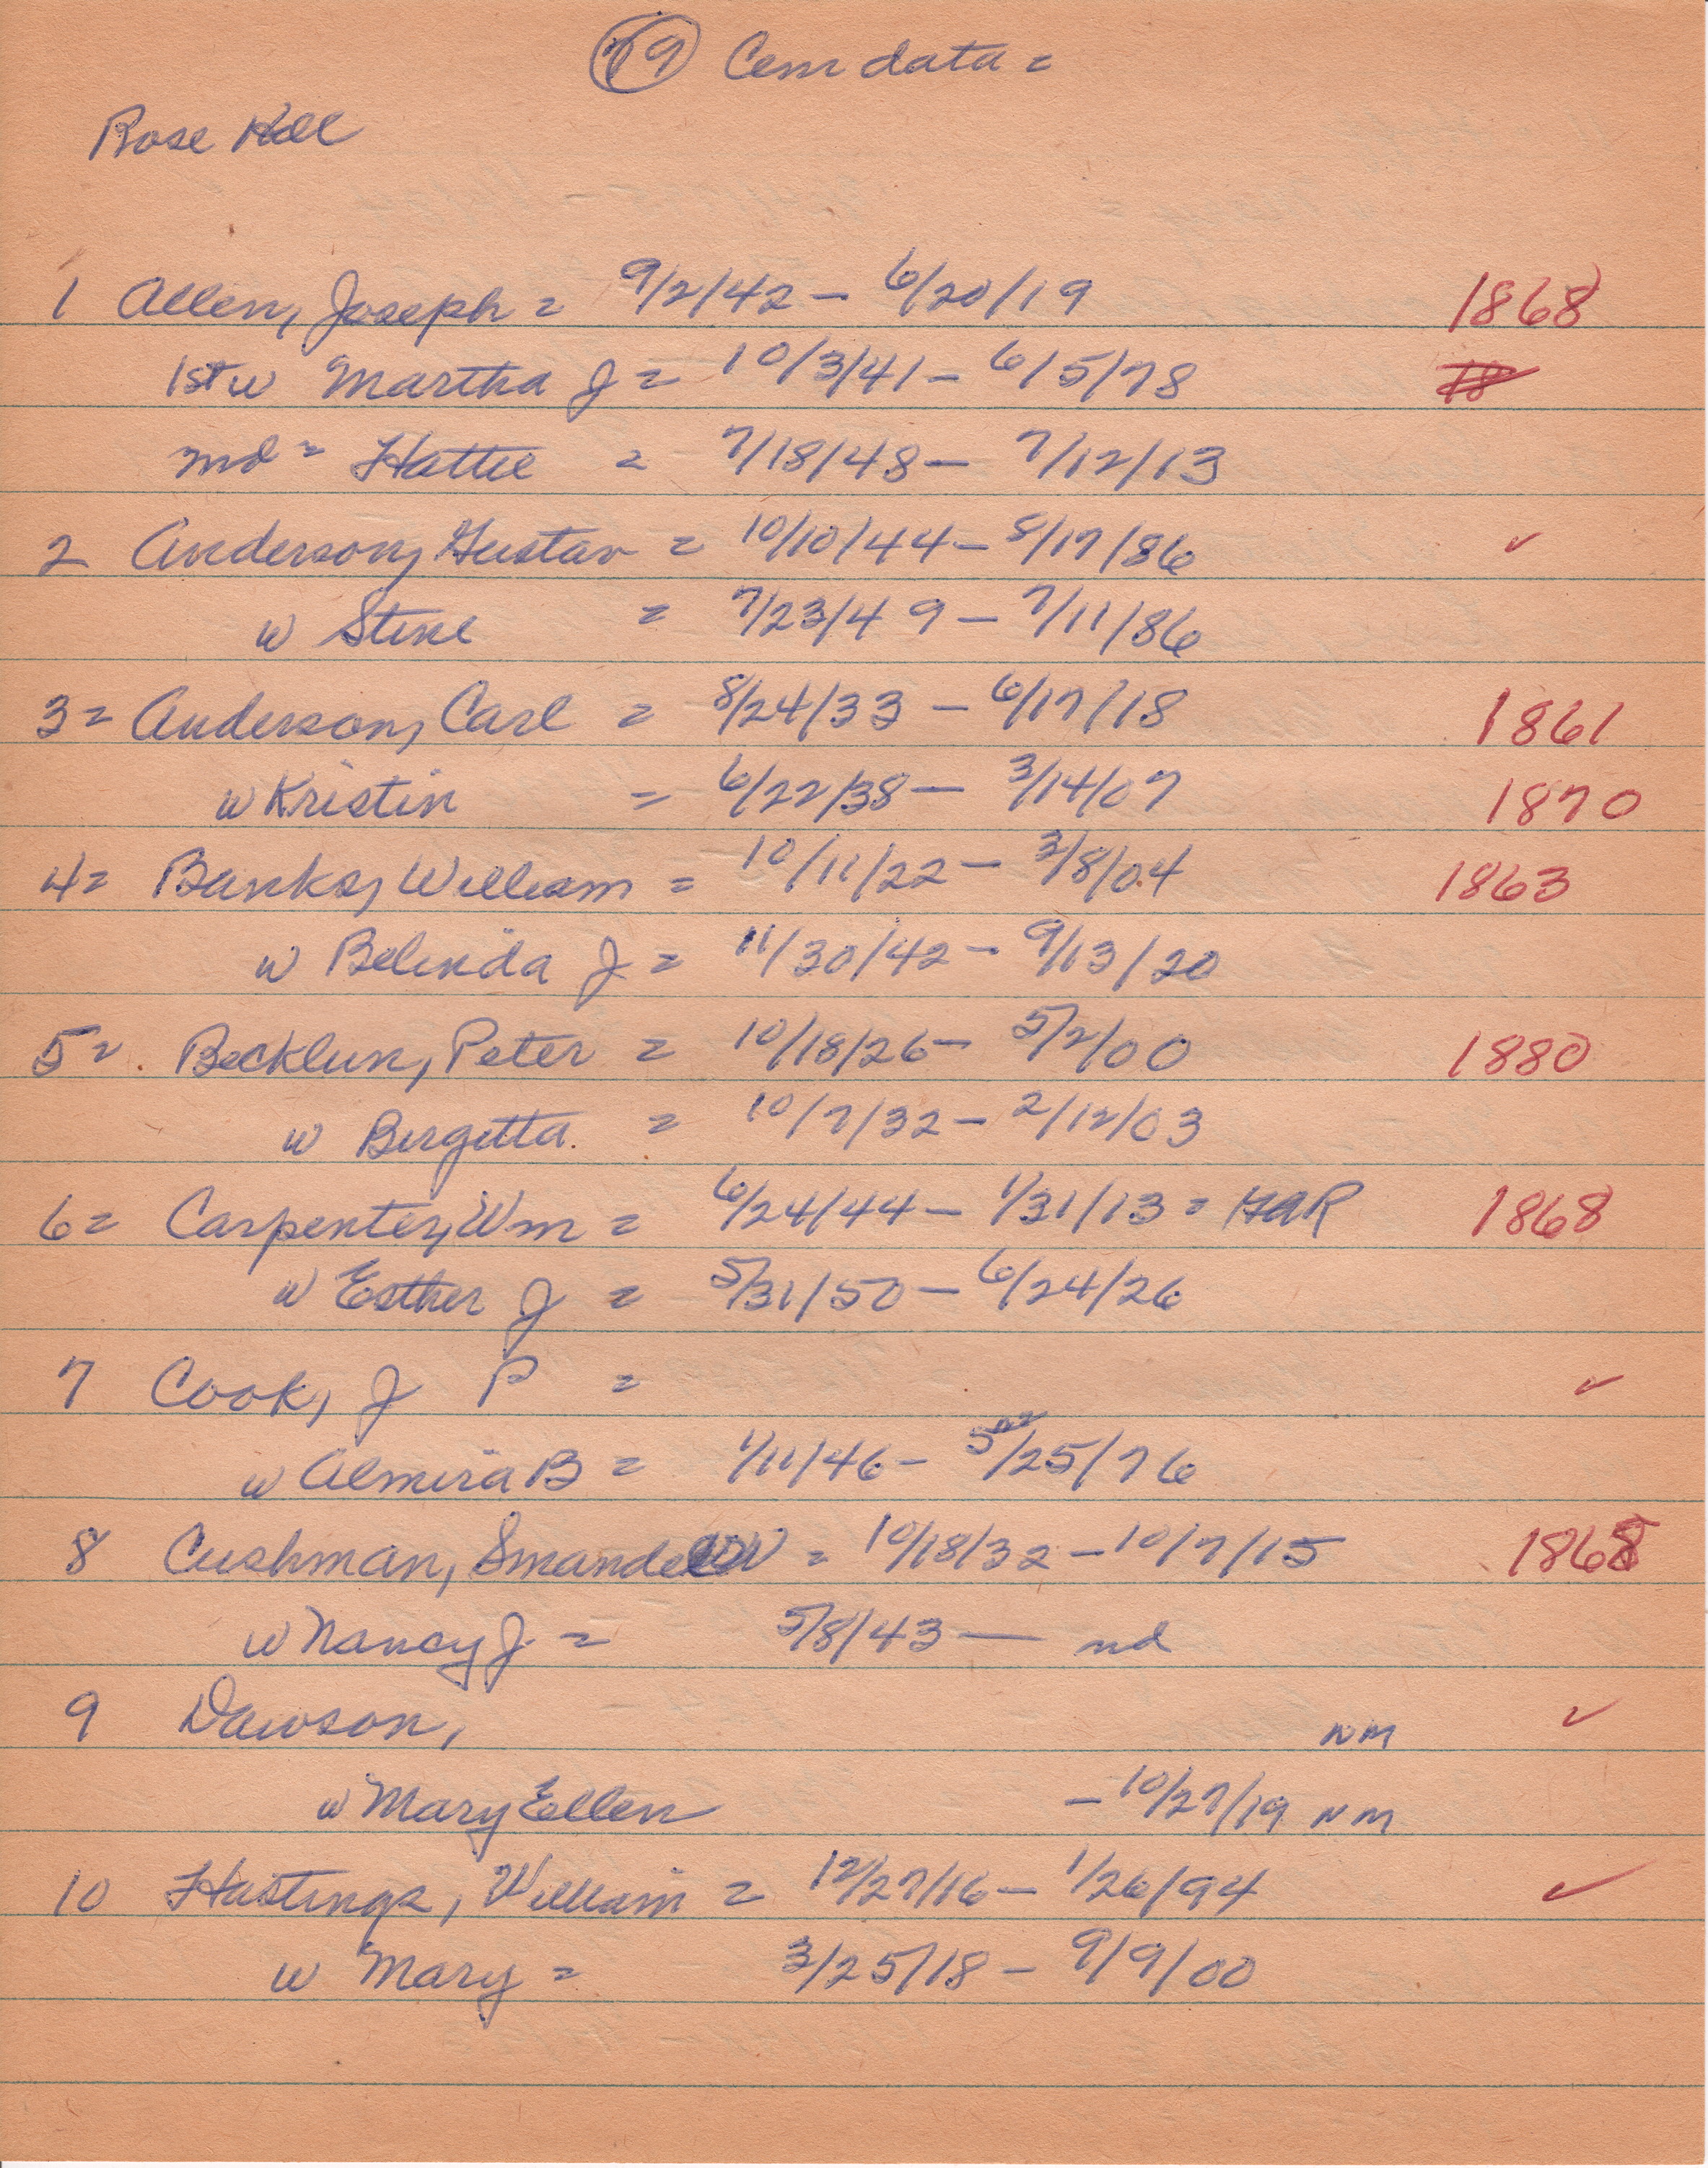 19 Cem data =
Rose Hill
1 Allen, Joseph = 9/2/42 - 6/20/19 1868
1st w Martha J = 10/3/41 - 6/5/78
md = Hattie = 7/18/48 - 7/12/13
2 Anderson, Gustav = 10/10/44 - 8/17/86 ✓
w Stine = 7/23/49 - 7/11/86
3 = Anderson, Carl = 8/24/33 - 6/17/18 1861
w Kristin = 6/22/38 - 3/14/07 1870
4 = Banks, William = 10/11/22 - 3/8/04 1863
w Belinda J = 11/30/42 - 9/13/20
5 = Becklun, Peter = 10/18/26 - 5/2/00 1880
w Bergetta = 10/7/32 - 2/12/03
6 = Carpenter, Wm = 6/24/44 - 1/31/13 = GAR 1868
w Esther J = 5/31/50 - 6/24/26
7 Cook, J P = ✓
w Almira B = 1/11/46 - 5/25/76
8 Cushman, W = 10/18/32 - 10/7/15 1868
w Nancy J = 5/8/43 - nd
9 Dawson, NM ✓
w Mary Ellen - 10/27/19 NM
10 Hastings, William = 12/27/16 - 1/26/94 ✓
w Mary = 3/25/18 - 9/9/00